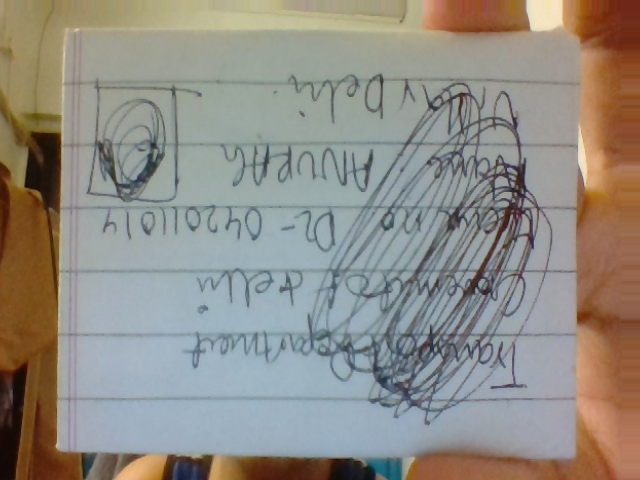 Transport Department
Goverment of delhi
no DL-042011014
Name ANURAG
Delhi